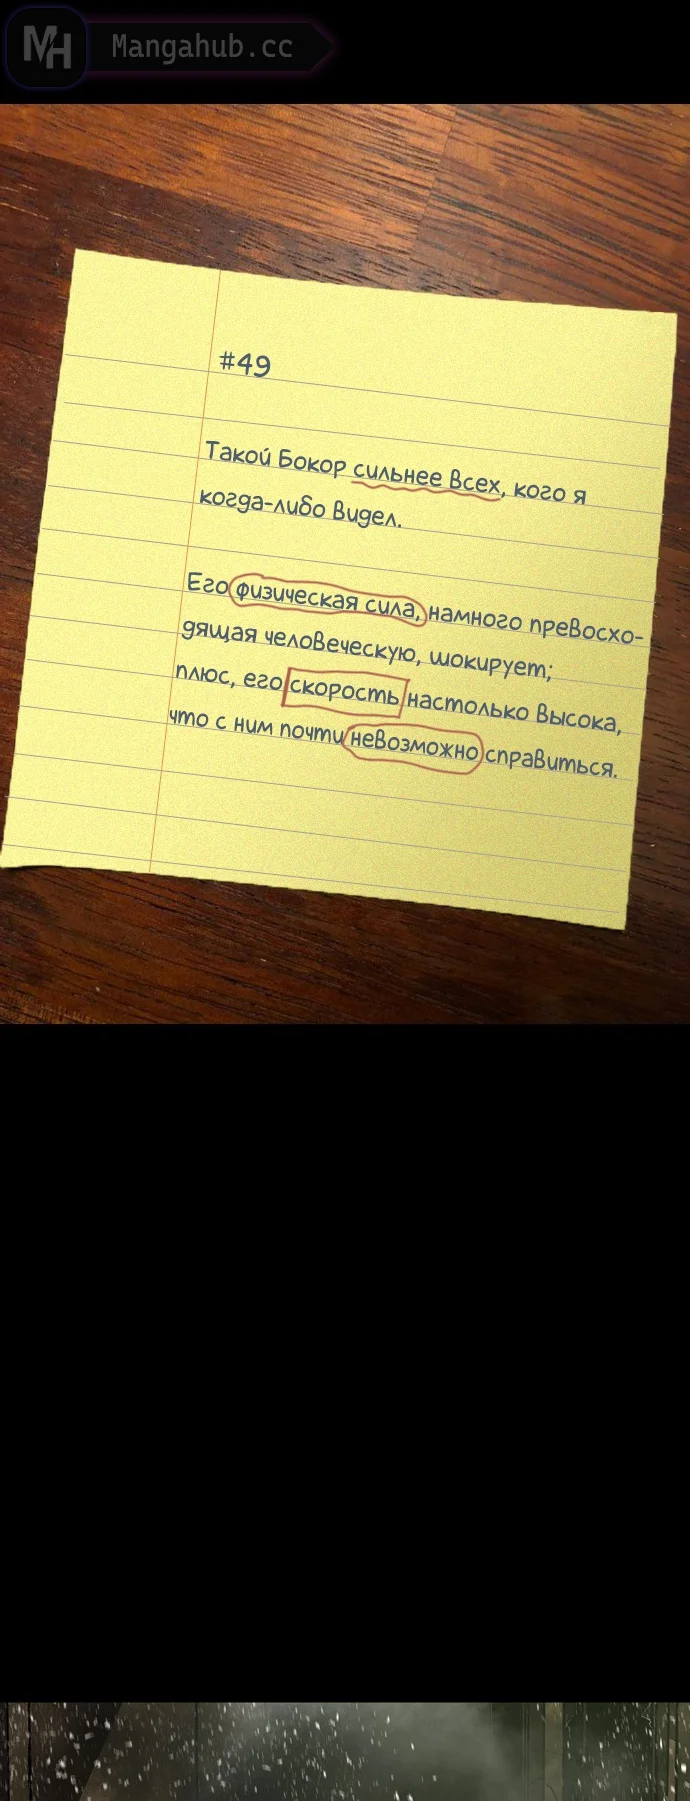 MH Mangahub.cc
#49
Такой Бокор сильнее всех, кого я
когда-либо видел.
Его физическая сила, намного превосхо-
дящая человеческую, шокирует;
плюс, его скорость настолько высока,
что с ним почти невозможно справиться.